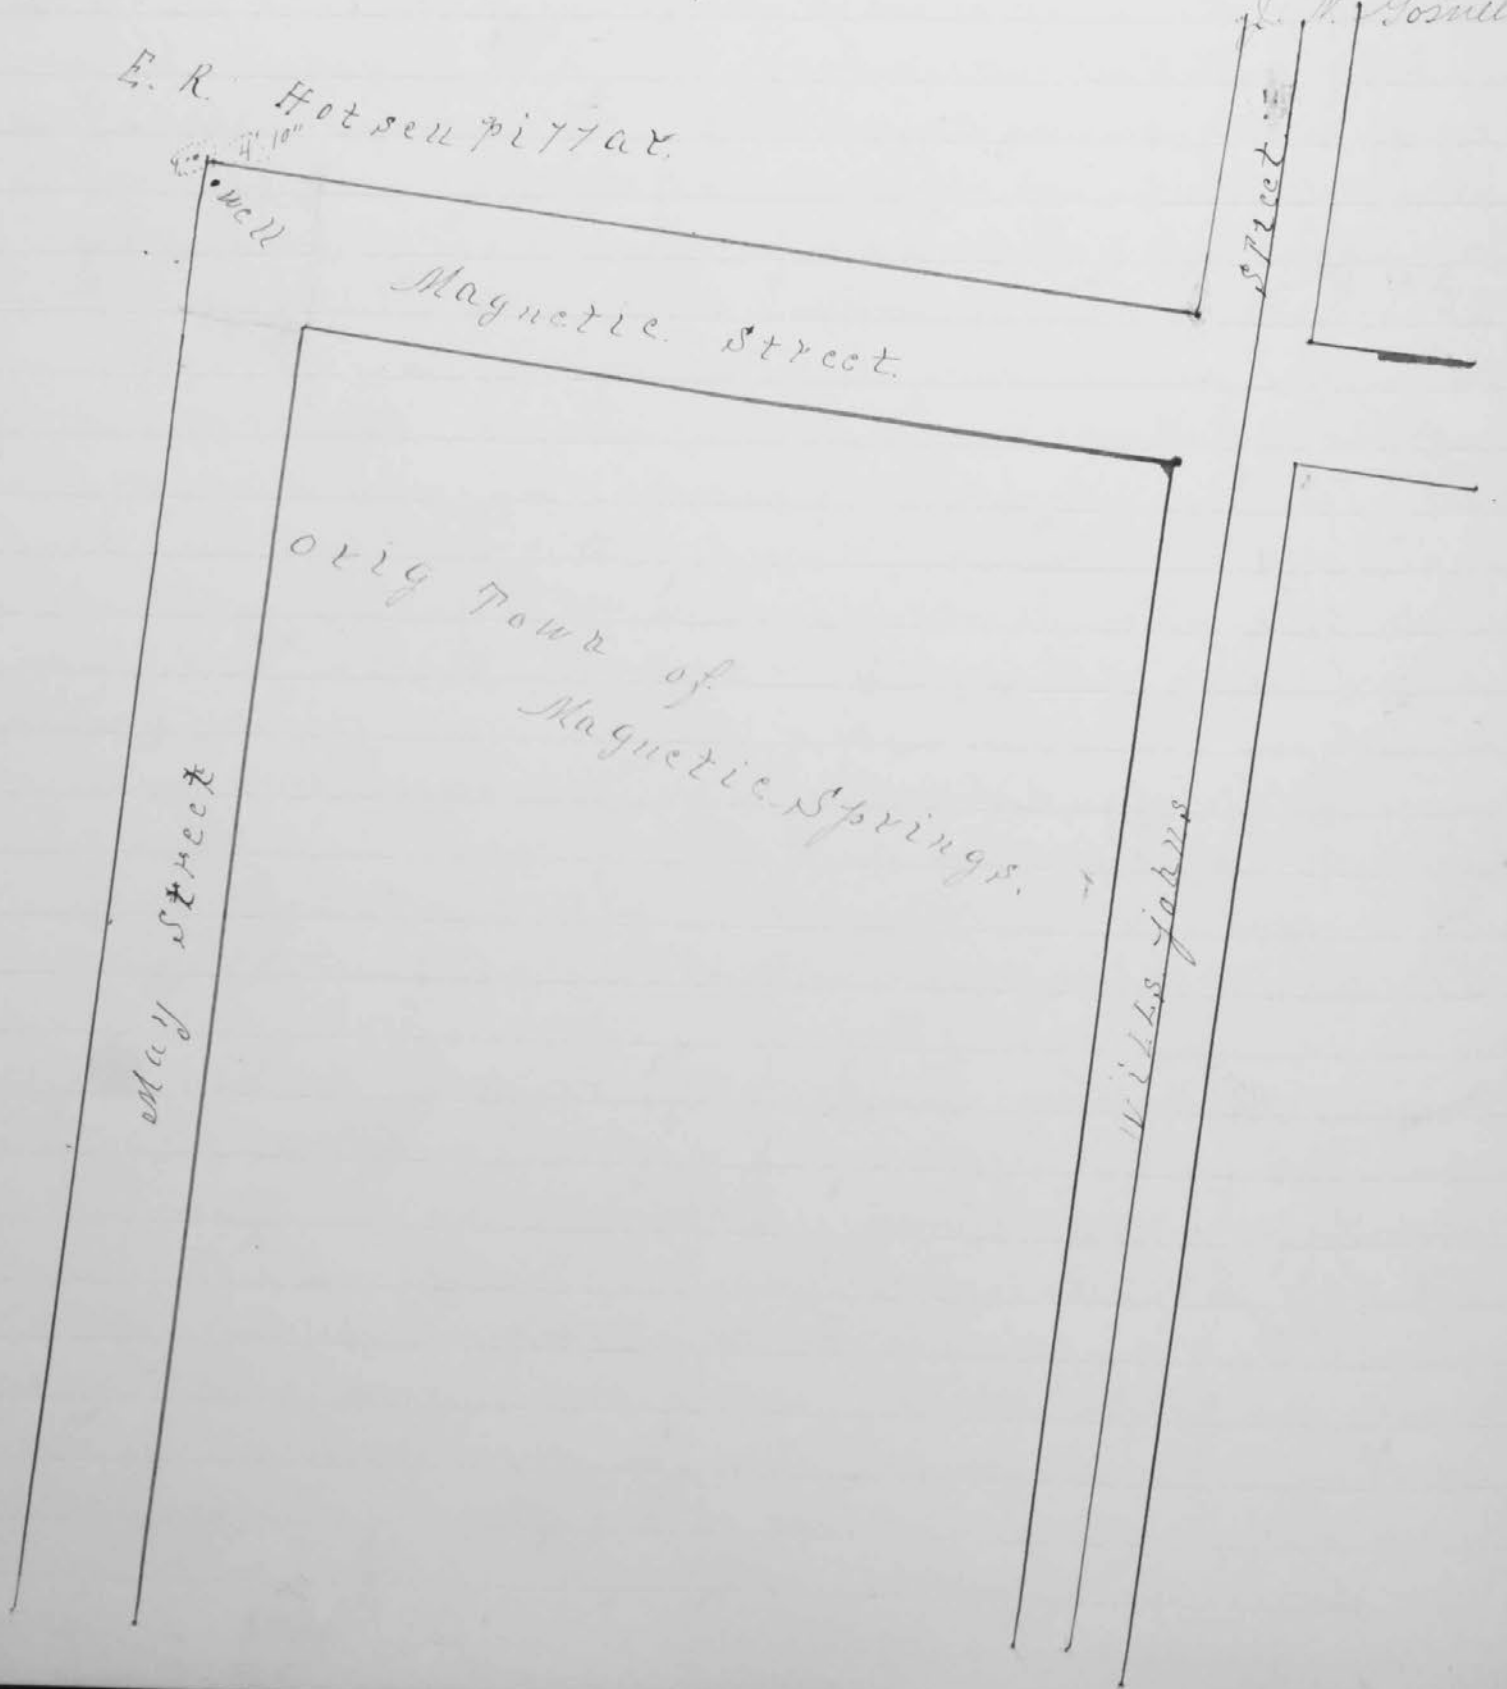 N. Gosnell
E. R. Hotsenpillar.
4' 10"
well
Magnetic Street.
Street.
Orig Town
of
Magnetic Springs.
May Street
Willis johns